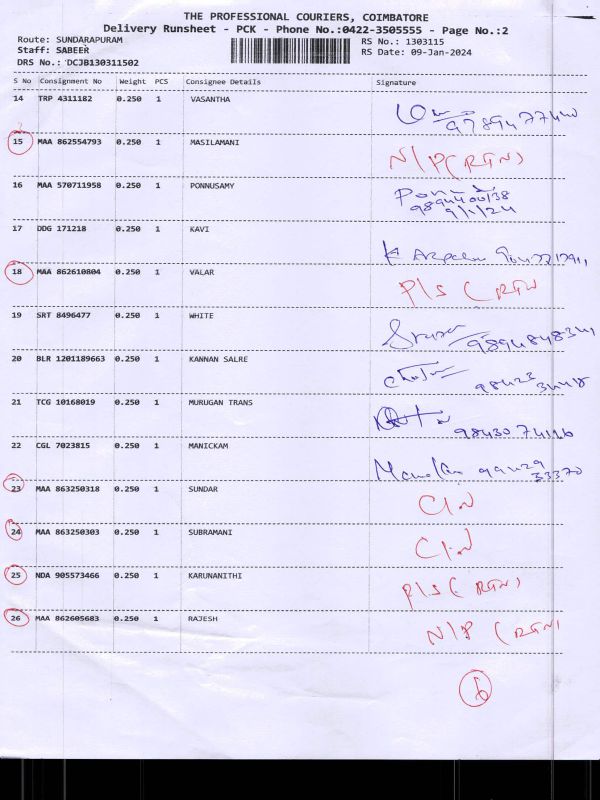 THE PROFESSIONAL COURIERS, COIMBATORE
Delivery Runsheet - PCK - Phone No.:0422-3505555 - Page No.:2
Route: SUNDARAPURAM RS No.: 1303115
Staff: SABEER RS Date: 09-Jan-2024
DRS No.: DCJB130311502
S No Consignment No Weight PCS Consignee Details Signature
14 TRP 4311182 0.250 1 VASANTHA
15 MAA 862554793 0.250 1 MASILAMANI
N/P (RTN)
16 MAA 570711958 0.250 1 PONNUSAMY
9/1/24
17 DDG 171218 0.250 1 KAVI
18 MAA 862610804 0.250 1 VALAR
P/S (RTN
19 SRT 8496477 0.250 1 WHITE
20 BLR 1201189663 0.250 1 KANNAN SALRE
21 TCG 10168019 0.250 1 MURUGAN TRANS
22 CGL 7023815 0.250 1 MANICKAM
23 MAA 863250318 0.250 1 SUNDAR
C/N
24 MAA 863250303 0.250 1 SUBRAMANI
C/N
25 NDA 905573466 0.250 1 KARUNANITHI
P/S (RTN)
26 MAA 862605683 0.250 1 RAJESH
N/P (RTN)
6